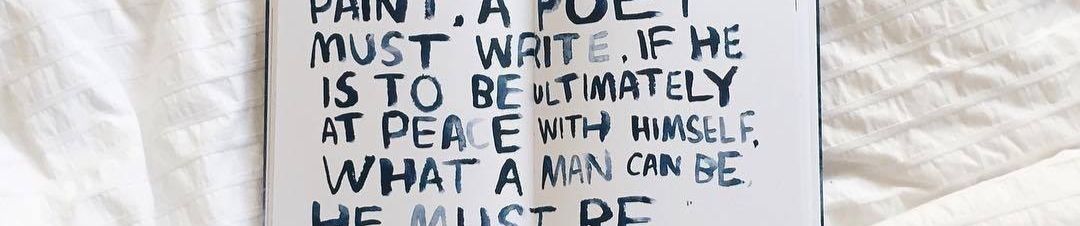 PAINT, A POET
MUST WRITE, IF HE
IS TO BE ULTIMATELY
AT PEACE WITH HIMSELF.
WHAT A MAN CAN BE,
HE MUST BE."